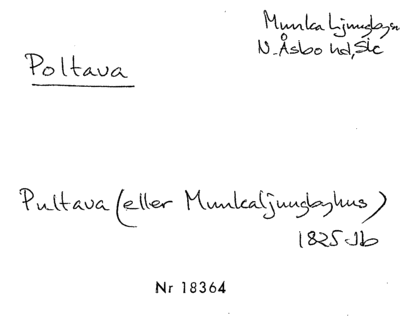 Munka Ljungby sn
N. Åsbo hd, Sk
Poltava
Pultava (eller Munkaljungbyhus)
1825 Jb
Nr 18364